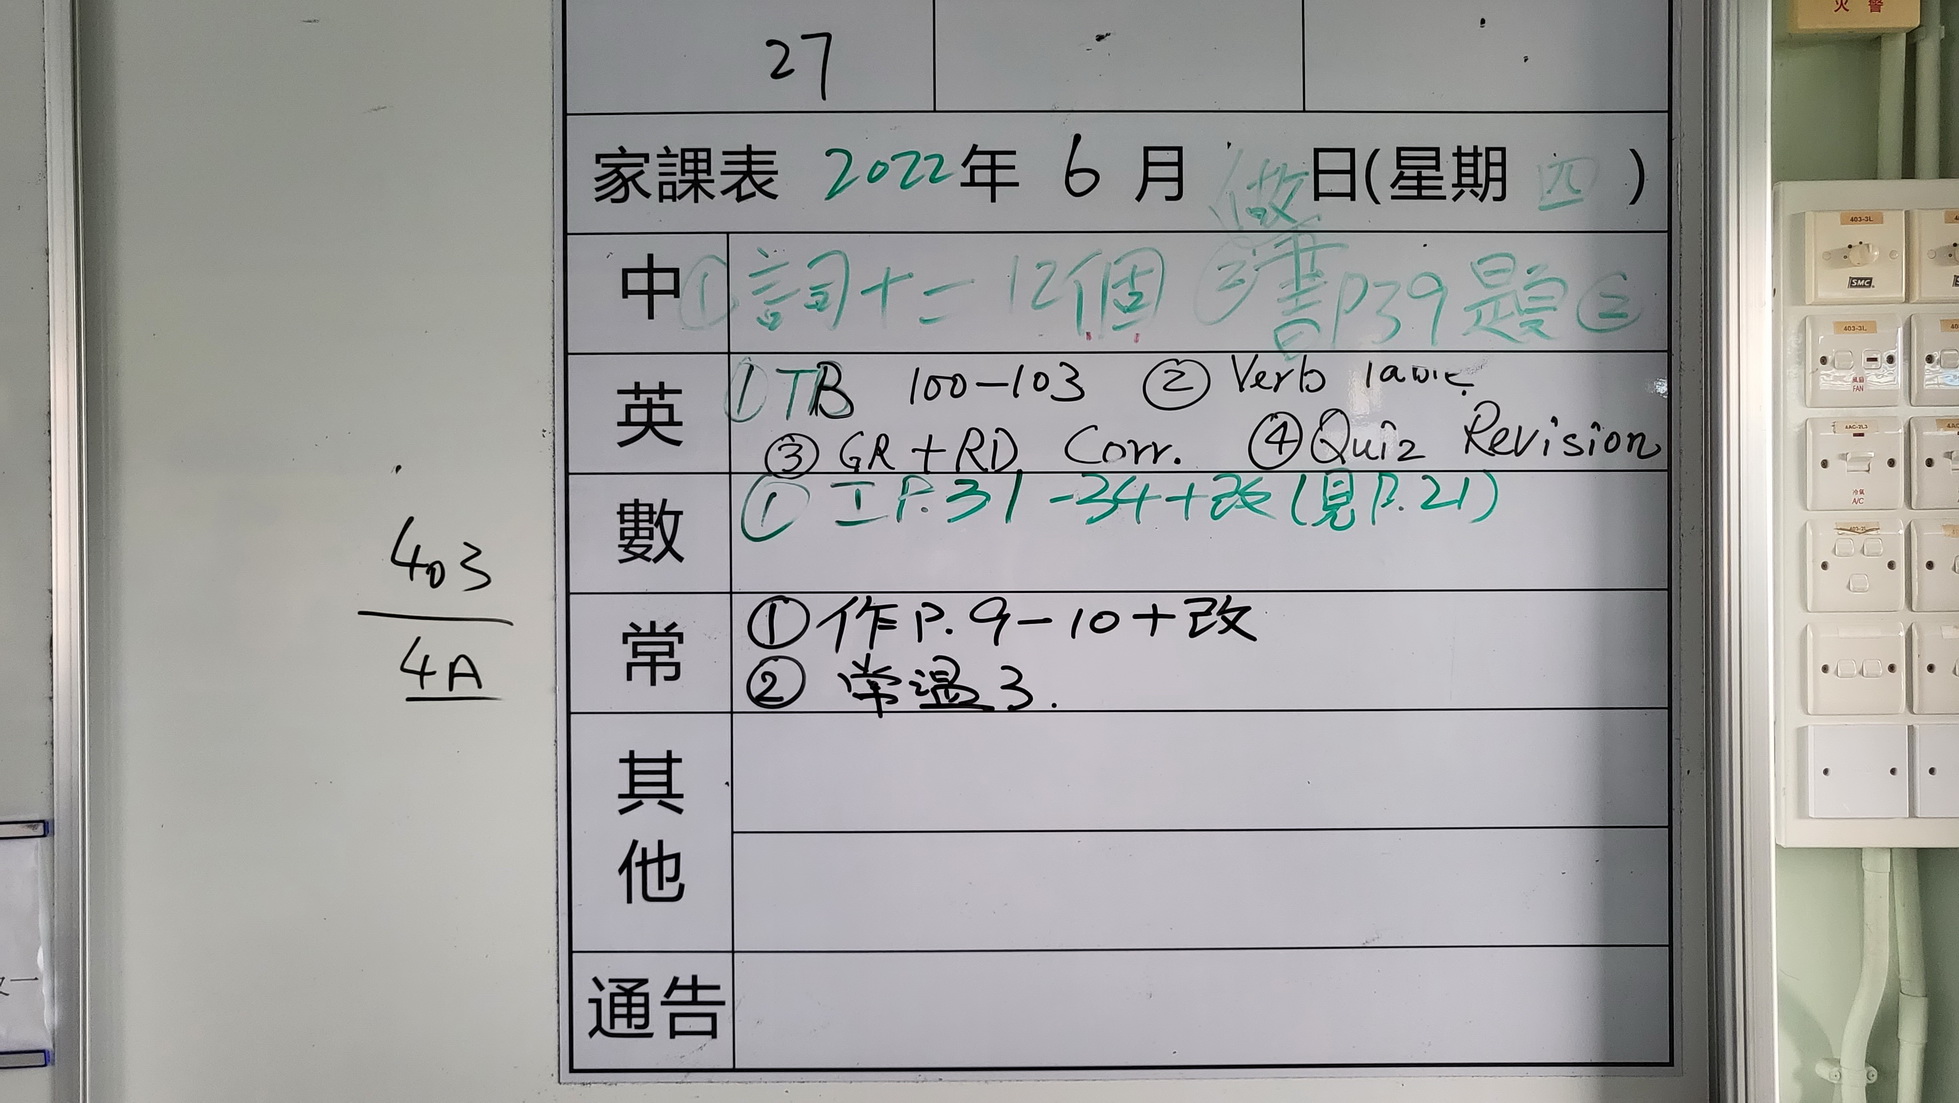 火警
27
家課表 2022年 6 月 日(星期 四 )
做
中 ① 詞十二 12個 ② 書P39 題②
英 ① TB 100-103 ② Verb table
③ GR + RD Corr. ④ Quiz Revision
數 ① 工P.31-34+改(見P.21)
常 ① 作P.9-10+改
② 常溫3.
其他
通告
403
4A
403-3L
403-3L
SMC
風扇
FAN
冷氣
A/C